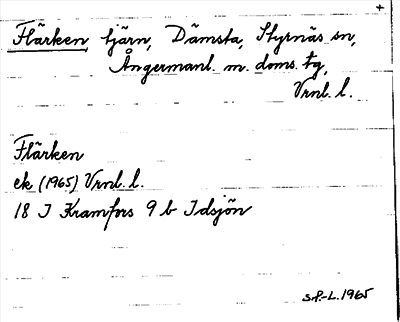 +
Flärken tjärn, Dämsta, Styrnäs sn,
Ångermanl. m. doms. tg,
Vrnl. l.
Flärken
ek (1965) Vrnl. l.
18 J Kramfors 9 b Idsjön
S.P.-L. 1965